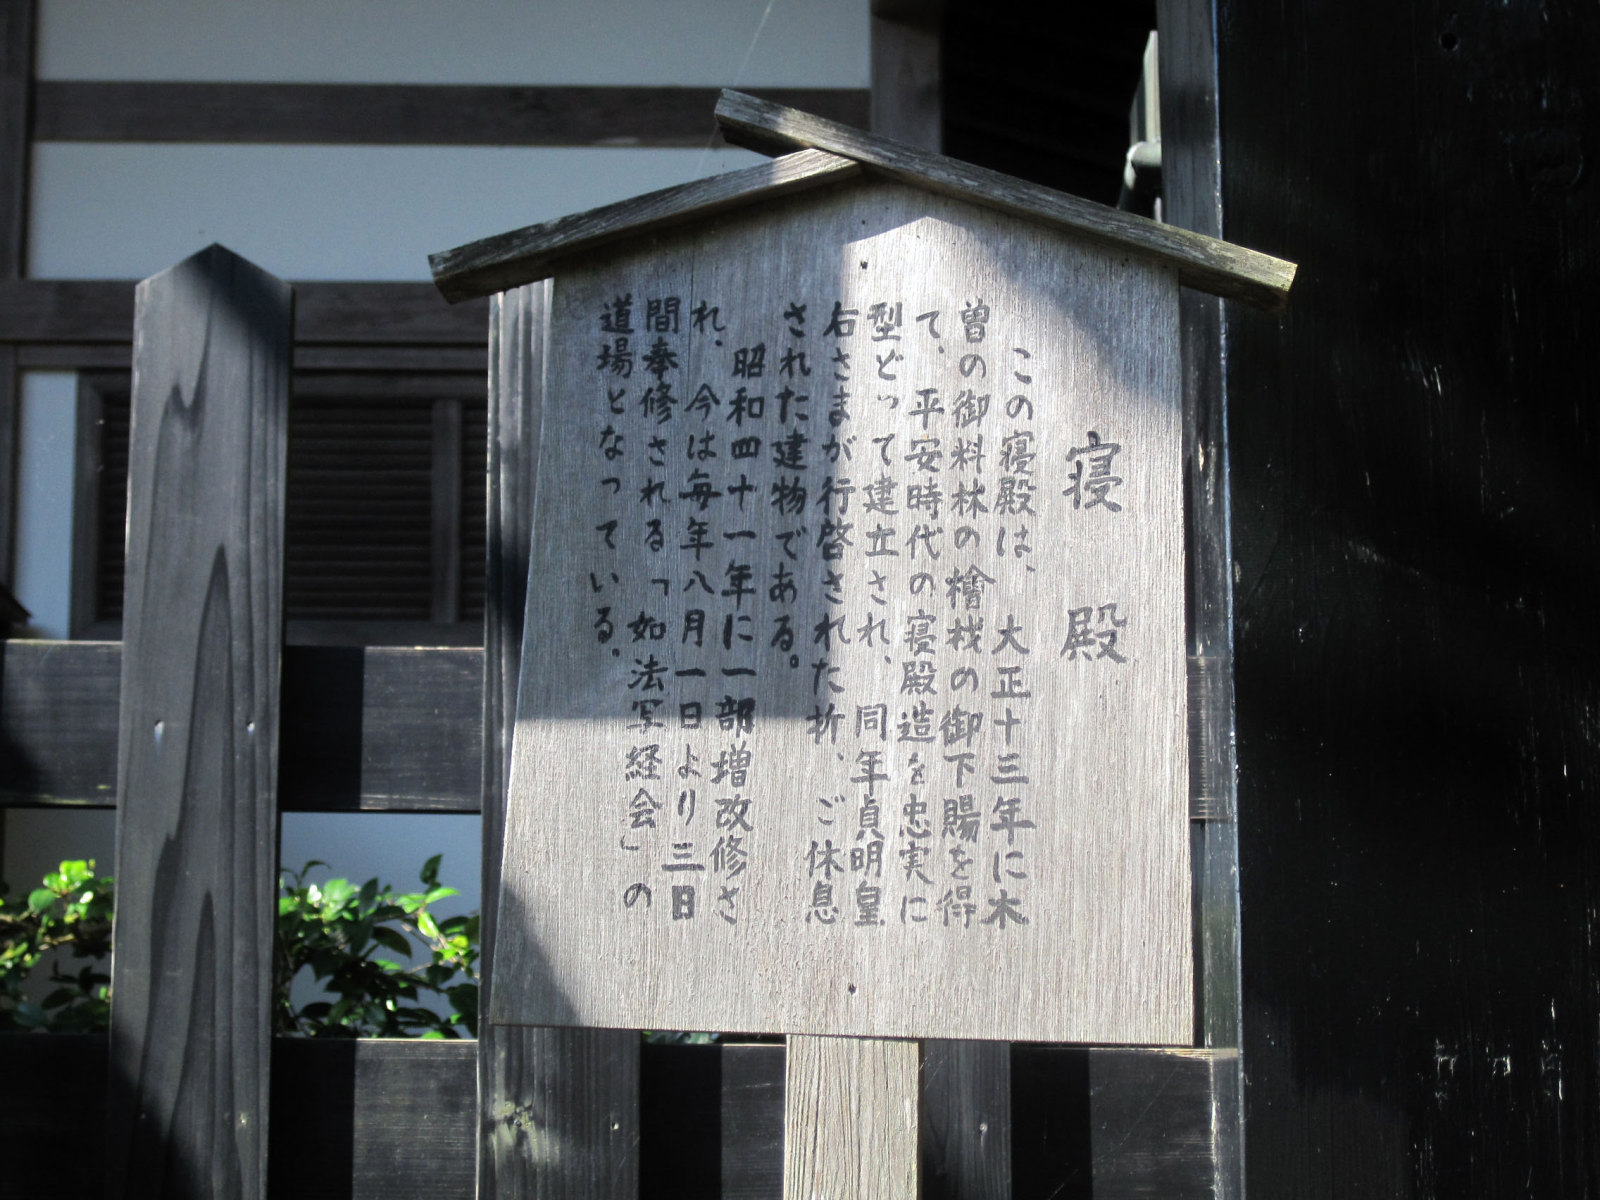 寝殿
この寝殿は、大正十三年に木
曽の御料林の檜材の御下賜を得
て、平安時代の寝殿造を忠実に
型どって建立され、同年貞明皇
后さまが行啓された折、ご休息
された建物である。
昭和四十一年に一部増改修さ
れ、今は毎年八月一日より三日
間奉修される「如法写経会」の
道場となっている。